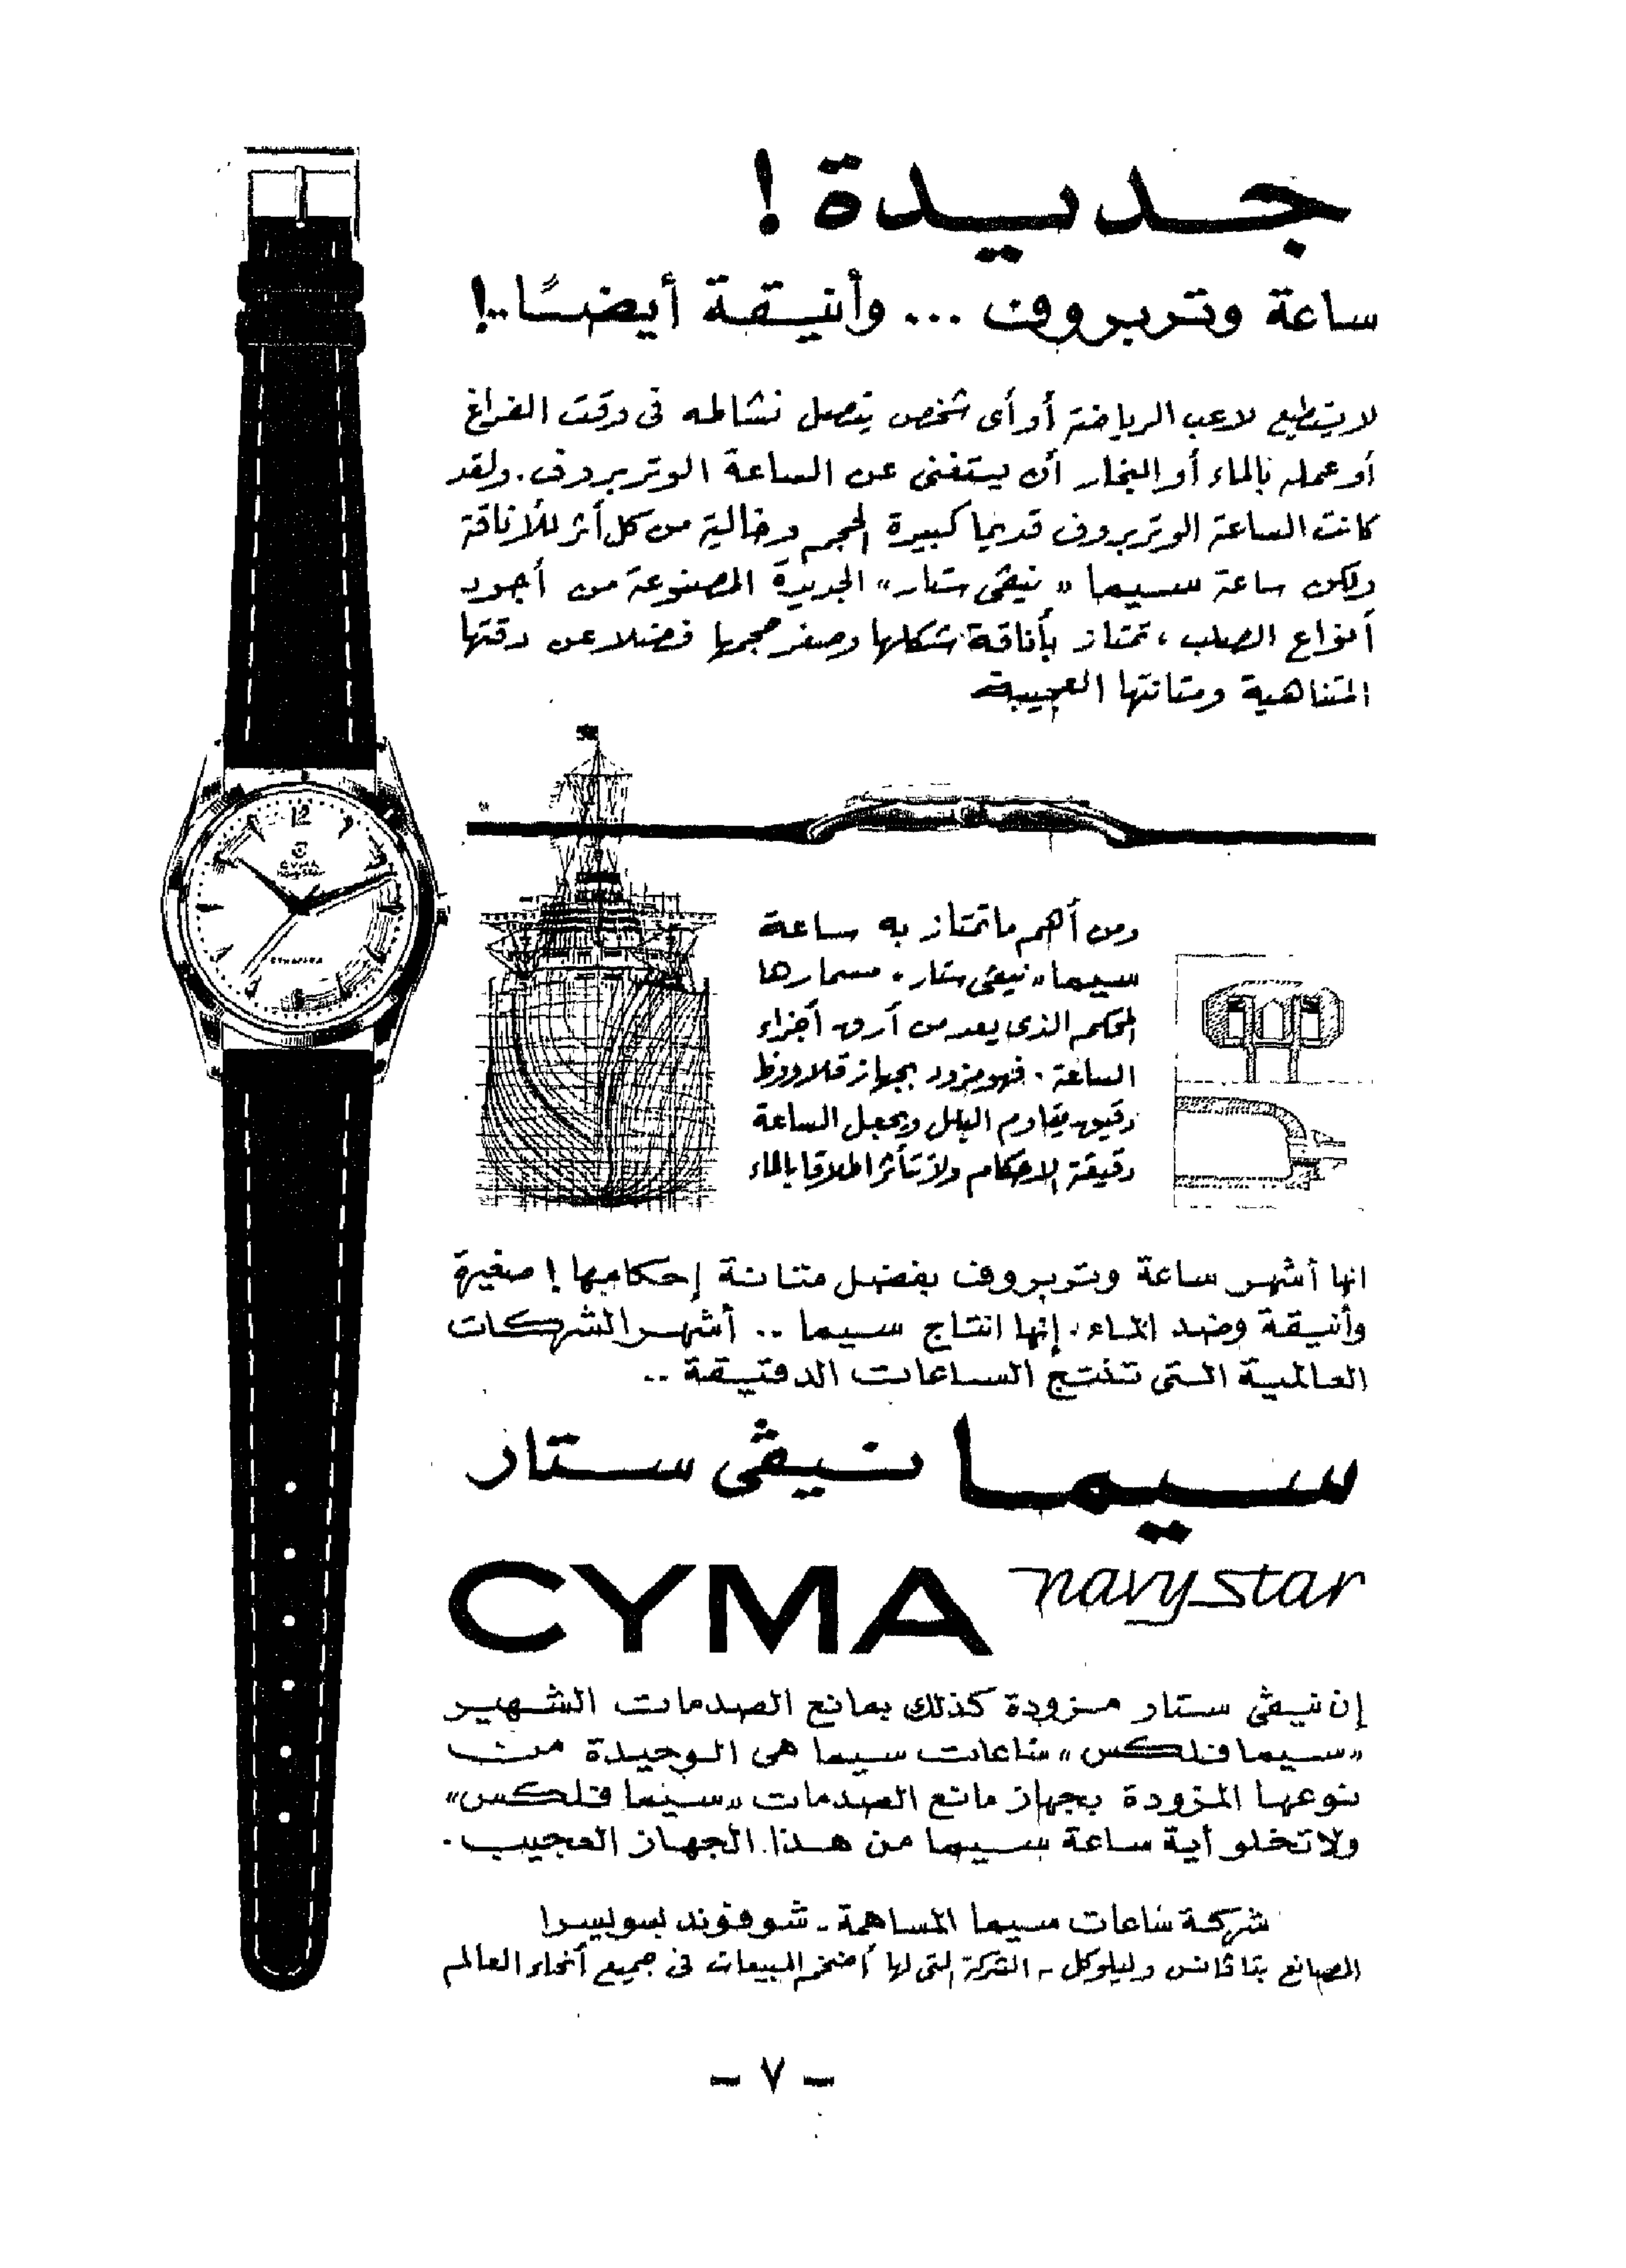 جديدة !
ساعة وتربروف ... وأنيقة أيضًا..!
لا يستطيع لاعب الرياضة أو أى شخص يتصل نشاطه فى وقت الفراغ
أو عمله بالماء أو البخار أن يستغنى عن الساعة الوتربروف . ولقد
كانت الساعة الوتربروف قديما كبيرة الحجم وخالية من كل أثر للأناقة
ولكن ساعة سيما « نيڤى ستار » الجديدة المصنوعة من أجود
أنواع الصلب ، تمتاز بأناقة شكلها وصغر حجمها فضلا عن دقتها
المتناهية ومتانتها العجيبة
12
CYMA
Navy Star
CYMAFLEX
ومن أهم ما تمتاز به ساعة
سيما « نيڤى ستار » مسمارها
المحكم الذى يعد من أرق أجزاء
الساعة . فهو مزود بجهاز قلاووظ
دقيق يقاوم البلل ويجعل الساعة
دقيقة الاحكام ولا تتأثر اطلاقا بالماء
انها أشهر ساعة وتربروف بفضل متانة إحكامها ! صغيرة
وأنيقة وضد الماء . إنها انتاج سيما .. أشهر الشركات
العالمية التى تنتج الساعات الدقيقة ..
سيما نيڤى ستار
CYMA navy star
إن نيڤى ستار مزودة كذلك بمانع الصدمات الشهير
« سيما فلكس » ساعات سيما هى الوحيدة من
نوعها المزودة بجهاز مانع الصدمات « سيما فلكس »
ولا تخلو أية ساعة سيما من هذا الجهاز العجيب .
شركة ساعات سيما المساهمة - شوفوند بسويسرا
المصانع بتاڤانس وليلوكل - الشركة التى لها أضخم المبيعات فى جميع أنحاء العالم
- ٧ -